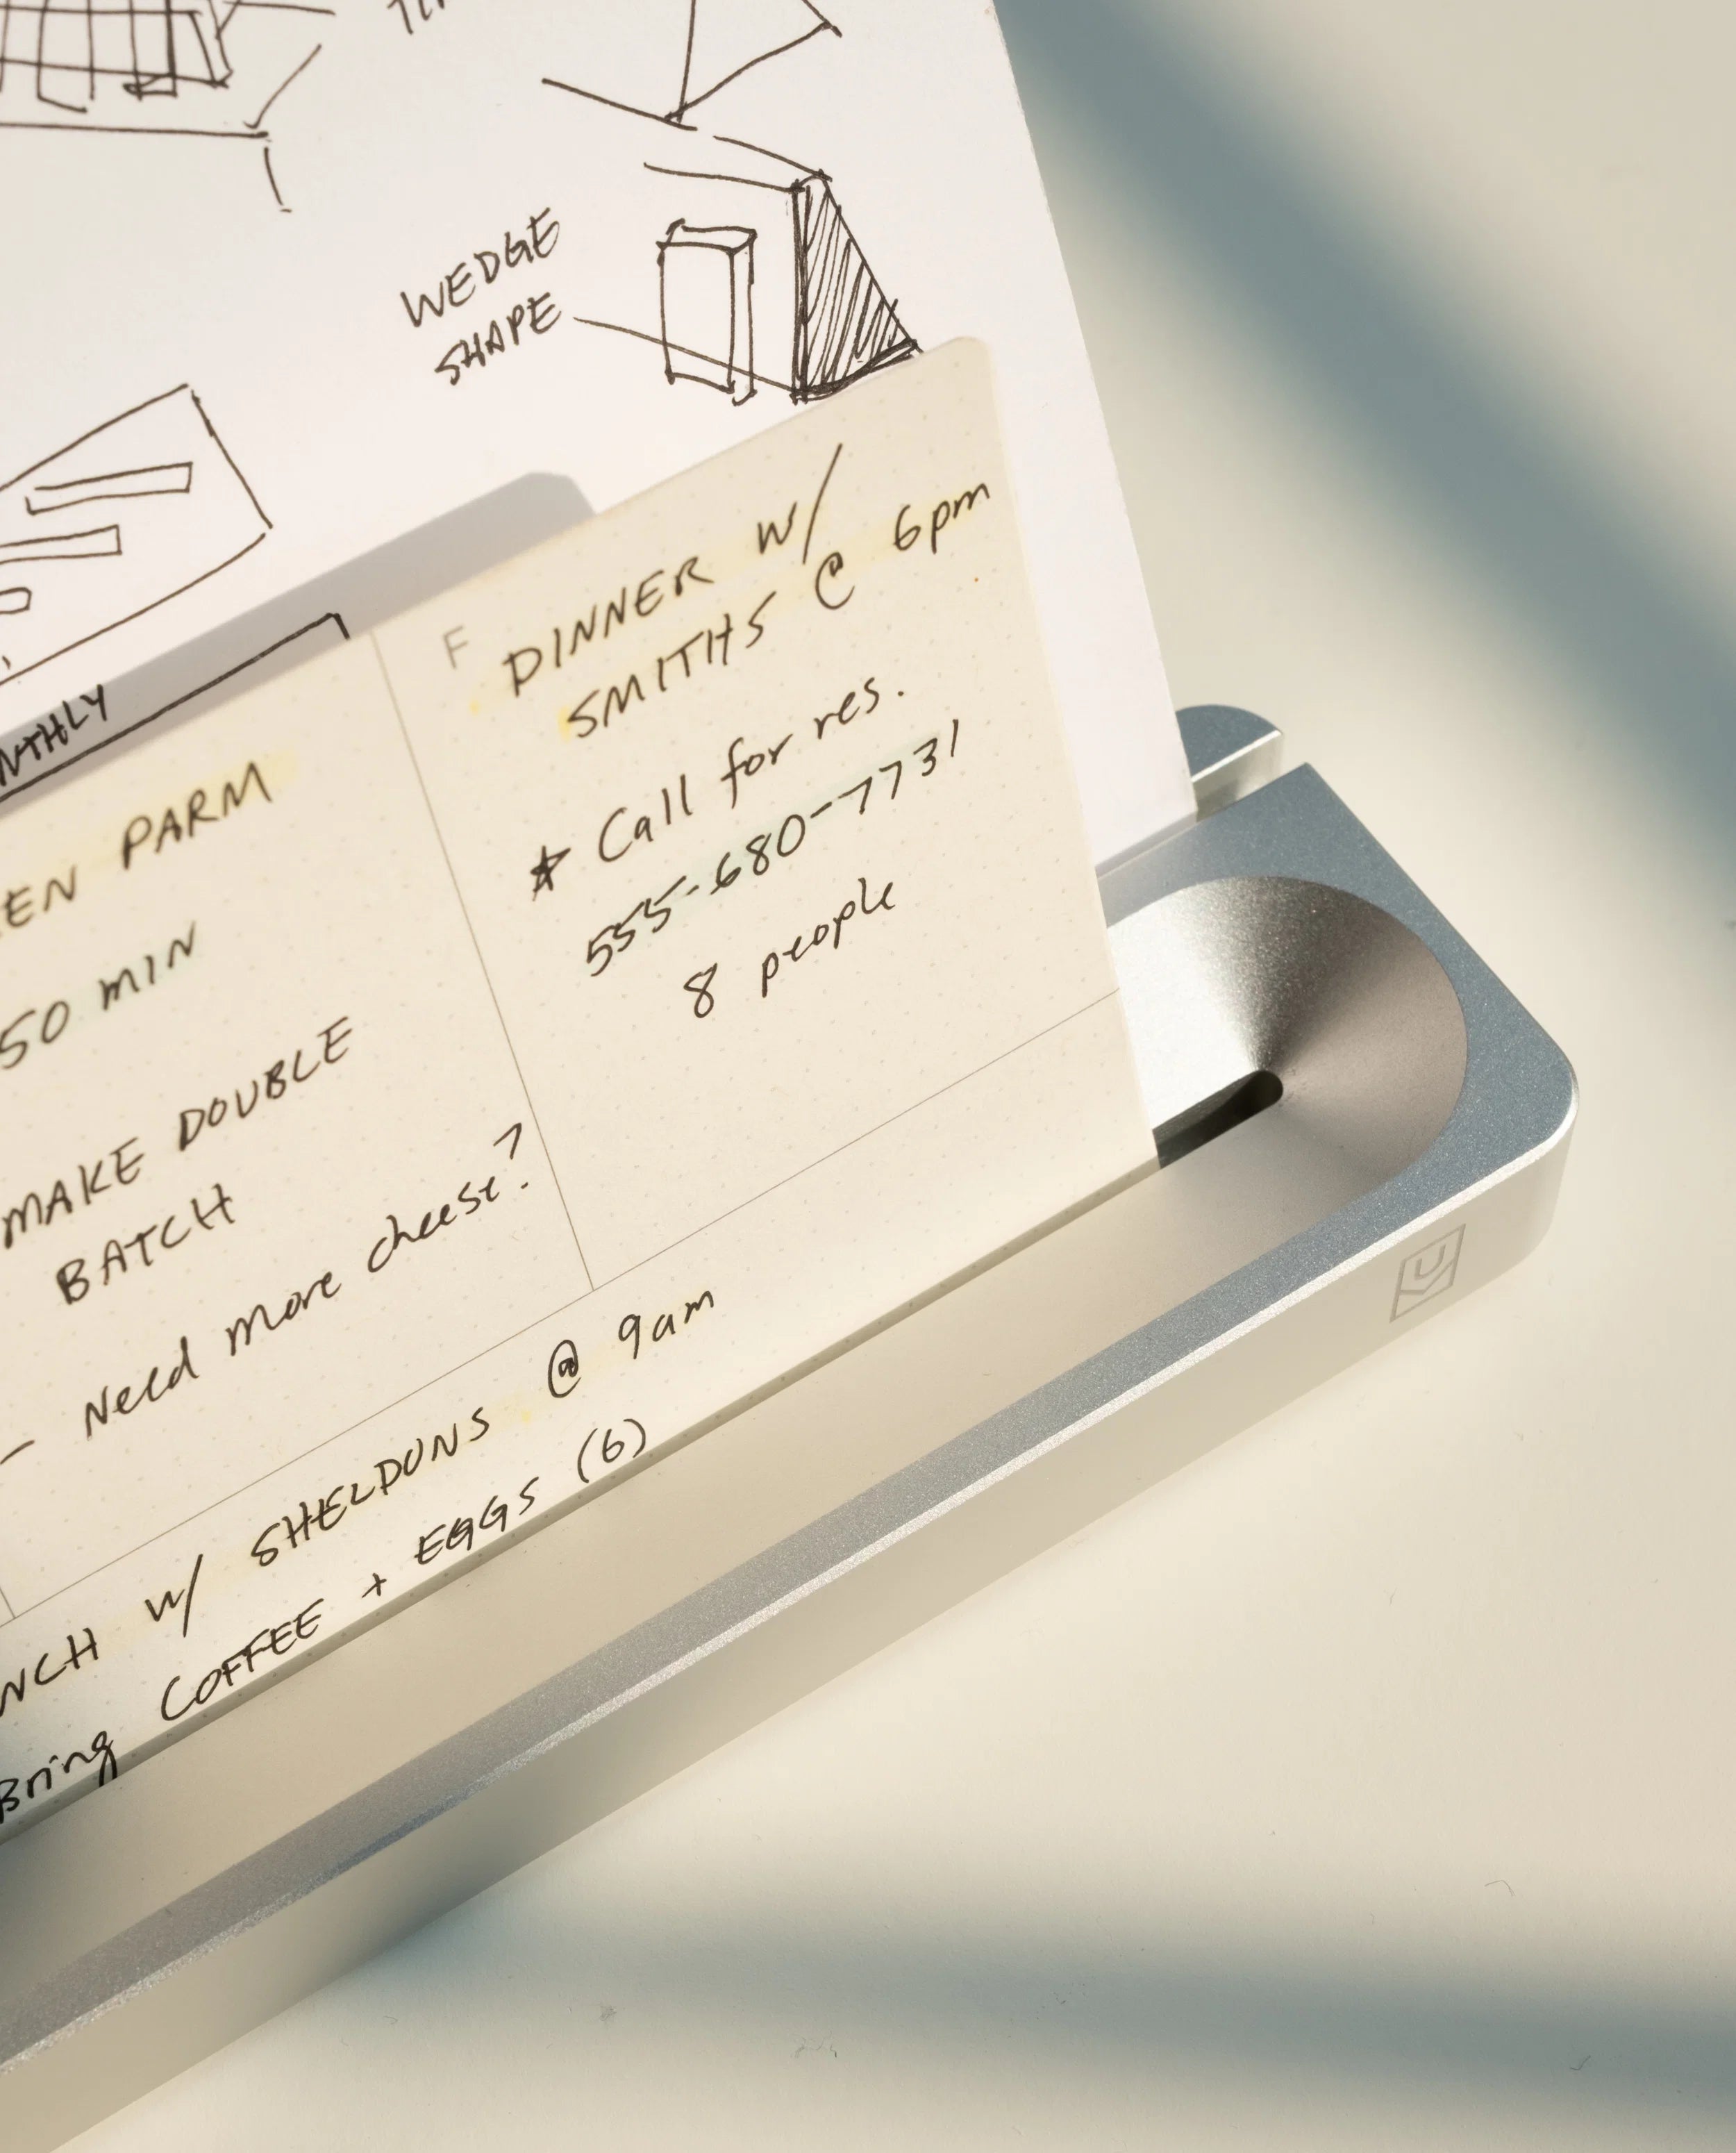 WEDGE
SHAPE
PARM
50 MIN
MAKE DOUBLE
BATCH
- Need more cheese?
F
DINNER W/
SMITHS @ 6pm
* Call for res.
555-680-7731
8 people
W/ SHELDONS @ 9am
Bring COFFEE + EGGS (6)